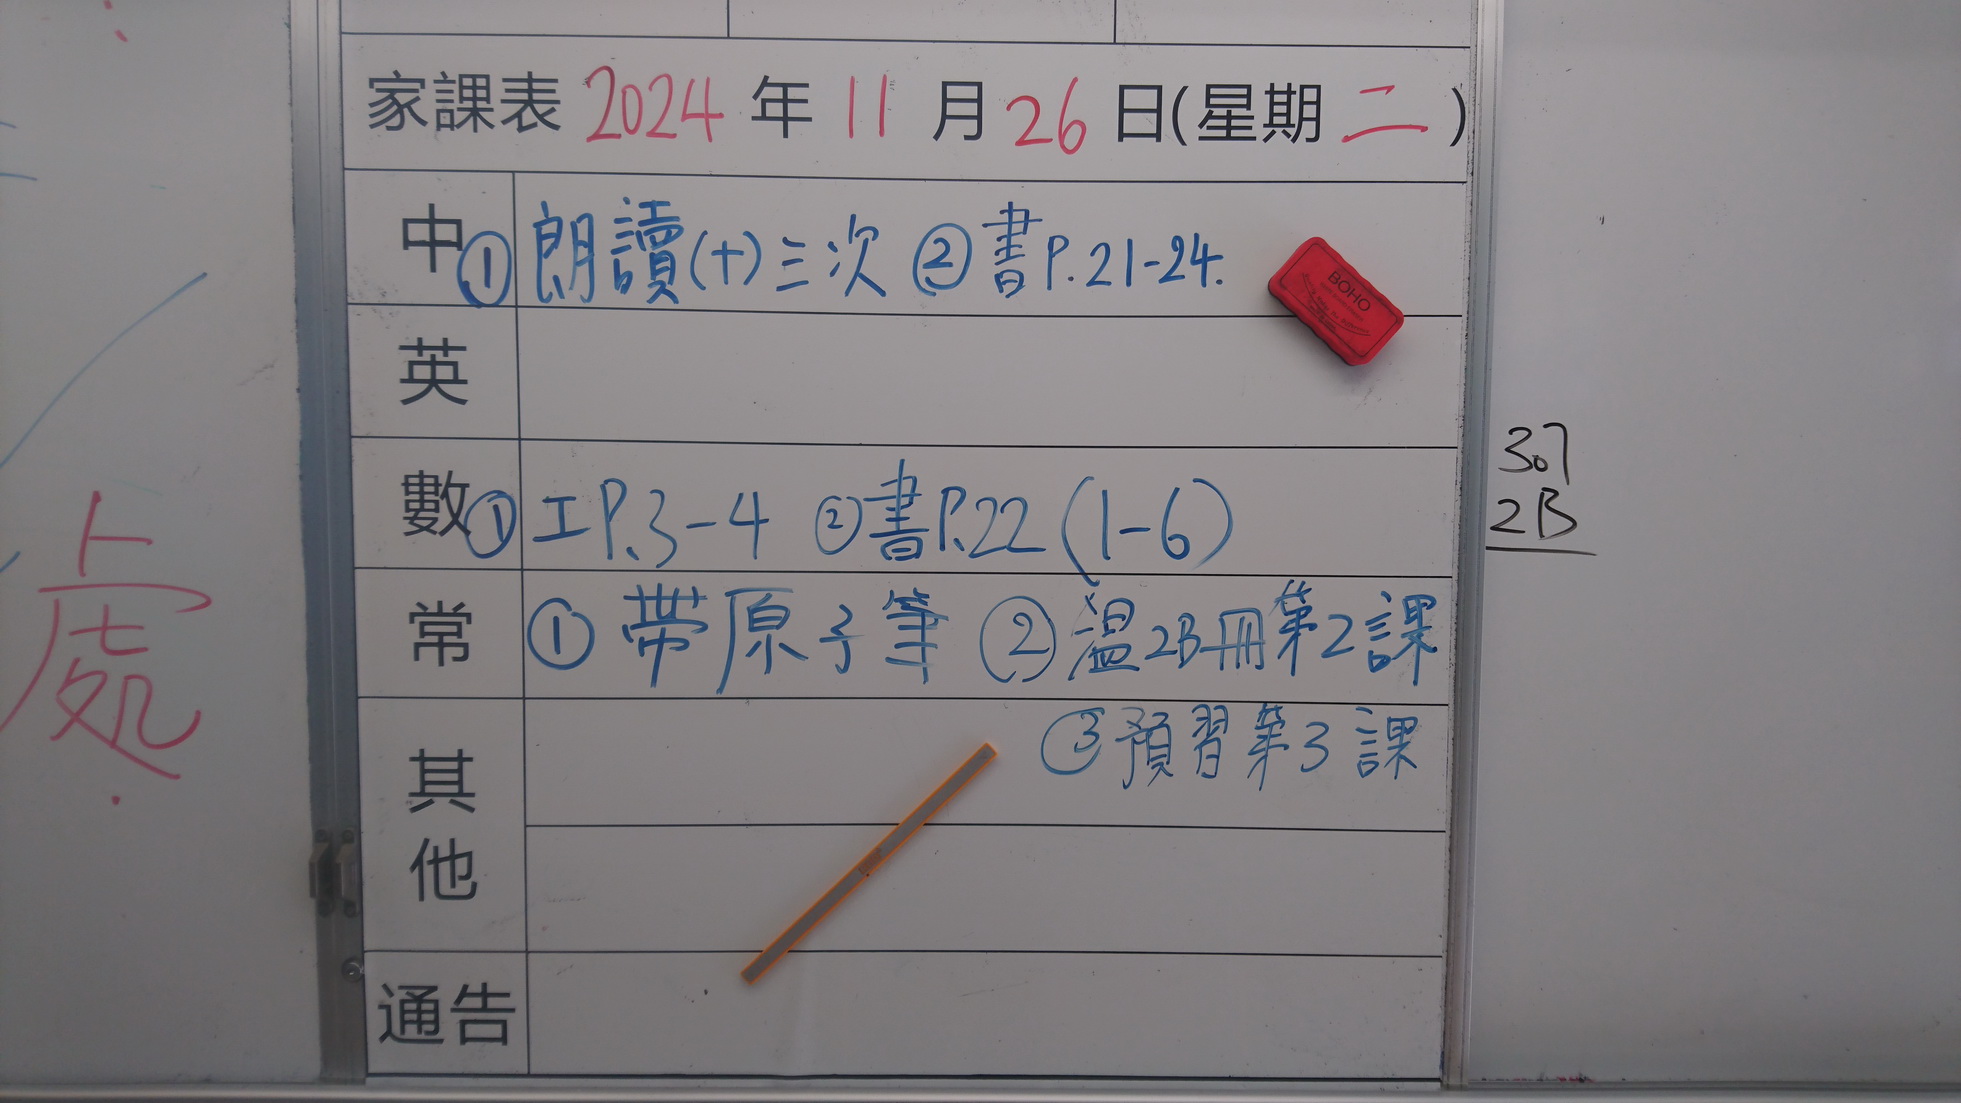 家課表 2024 年 11 月 26 日(星期 二 )
中 ① 朗讀(十)三次 ② 書P.21-24.
BOHO
英
數 ① 工P.3-4 ② 書P.22 (1-6)
常 ① 帶原子筆 ② 溫2B冊第2課
③ 預習第3課
其他
通告
處
307
2B